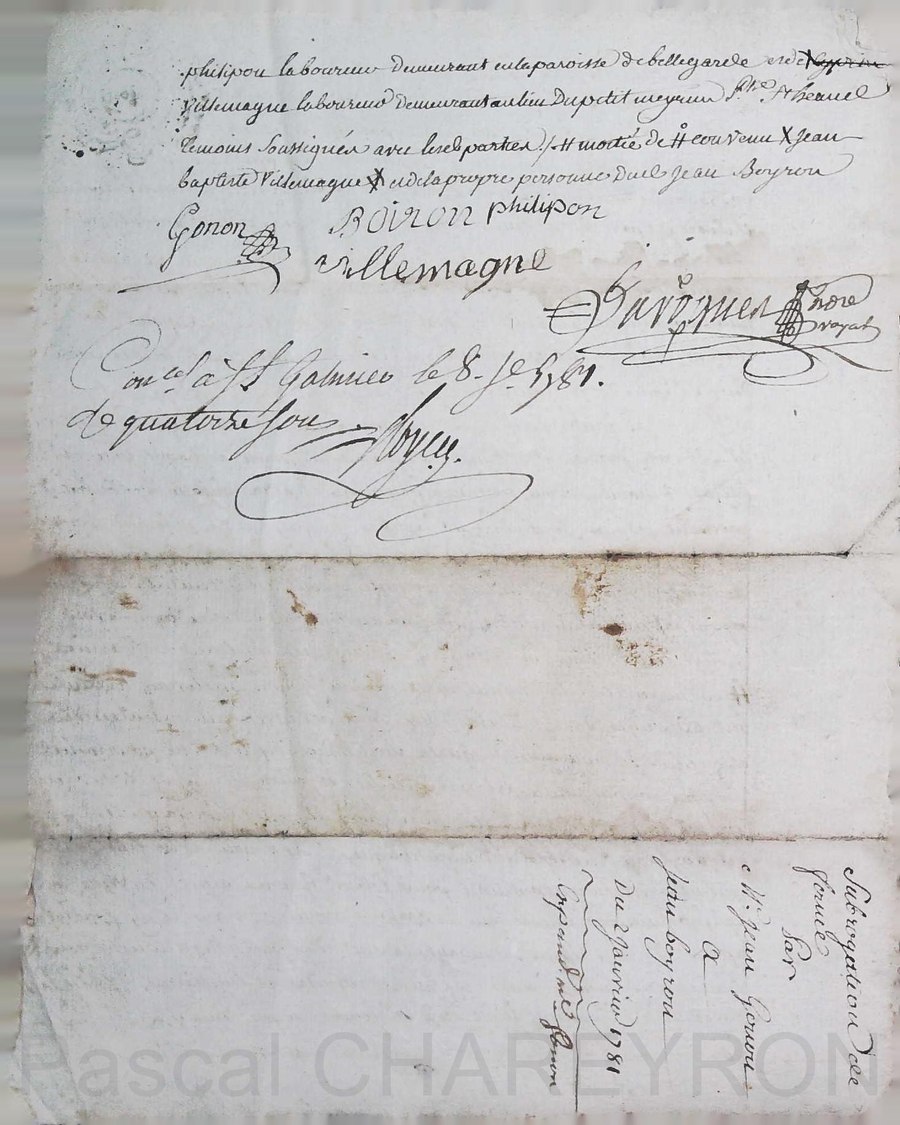 philipon laboureur demeurant en la paroisse de bellegarde et de
Villemagne laboureur demeurant au lieu Du petit meyrieu
temoins soussignés avec lesd parties /# moitié de # convenu X jean
baptiste Villemagne X et de la propre personne dud Jean Boyron
Gonon
Boiron philipon
villemagne
Con.el à St Galmier le 8. Je 1781.
de quatorze sous
Subrogation de
ferme
Par
Mr Jean Gonon
A
Jean boyron
Du 2 Janvier 1781